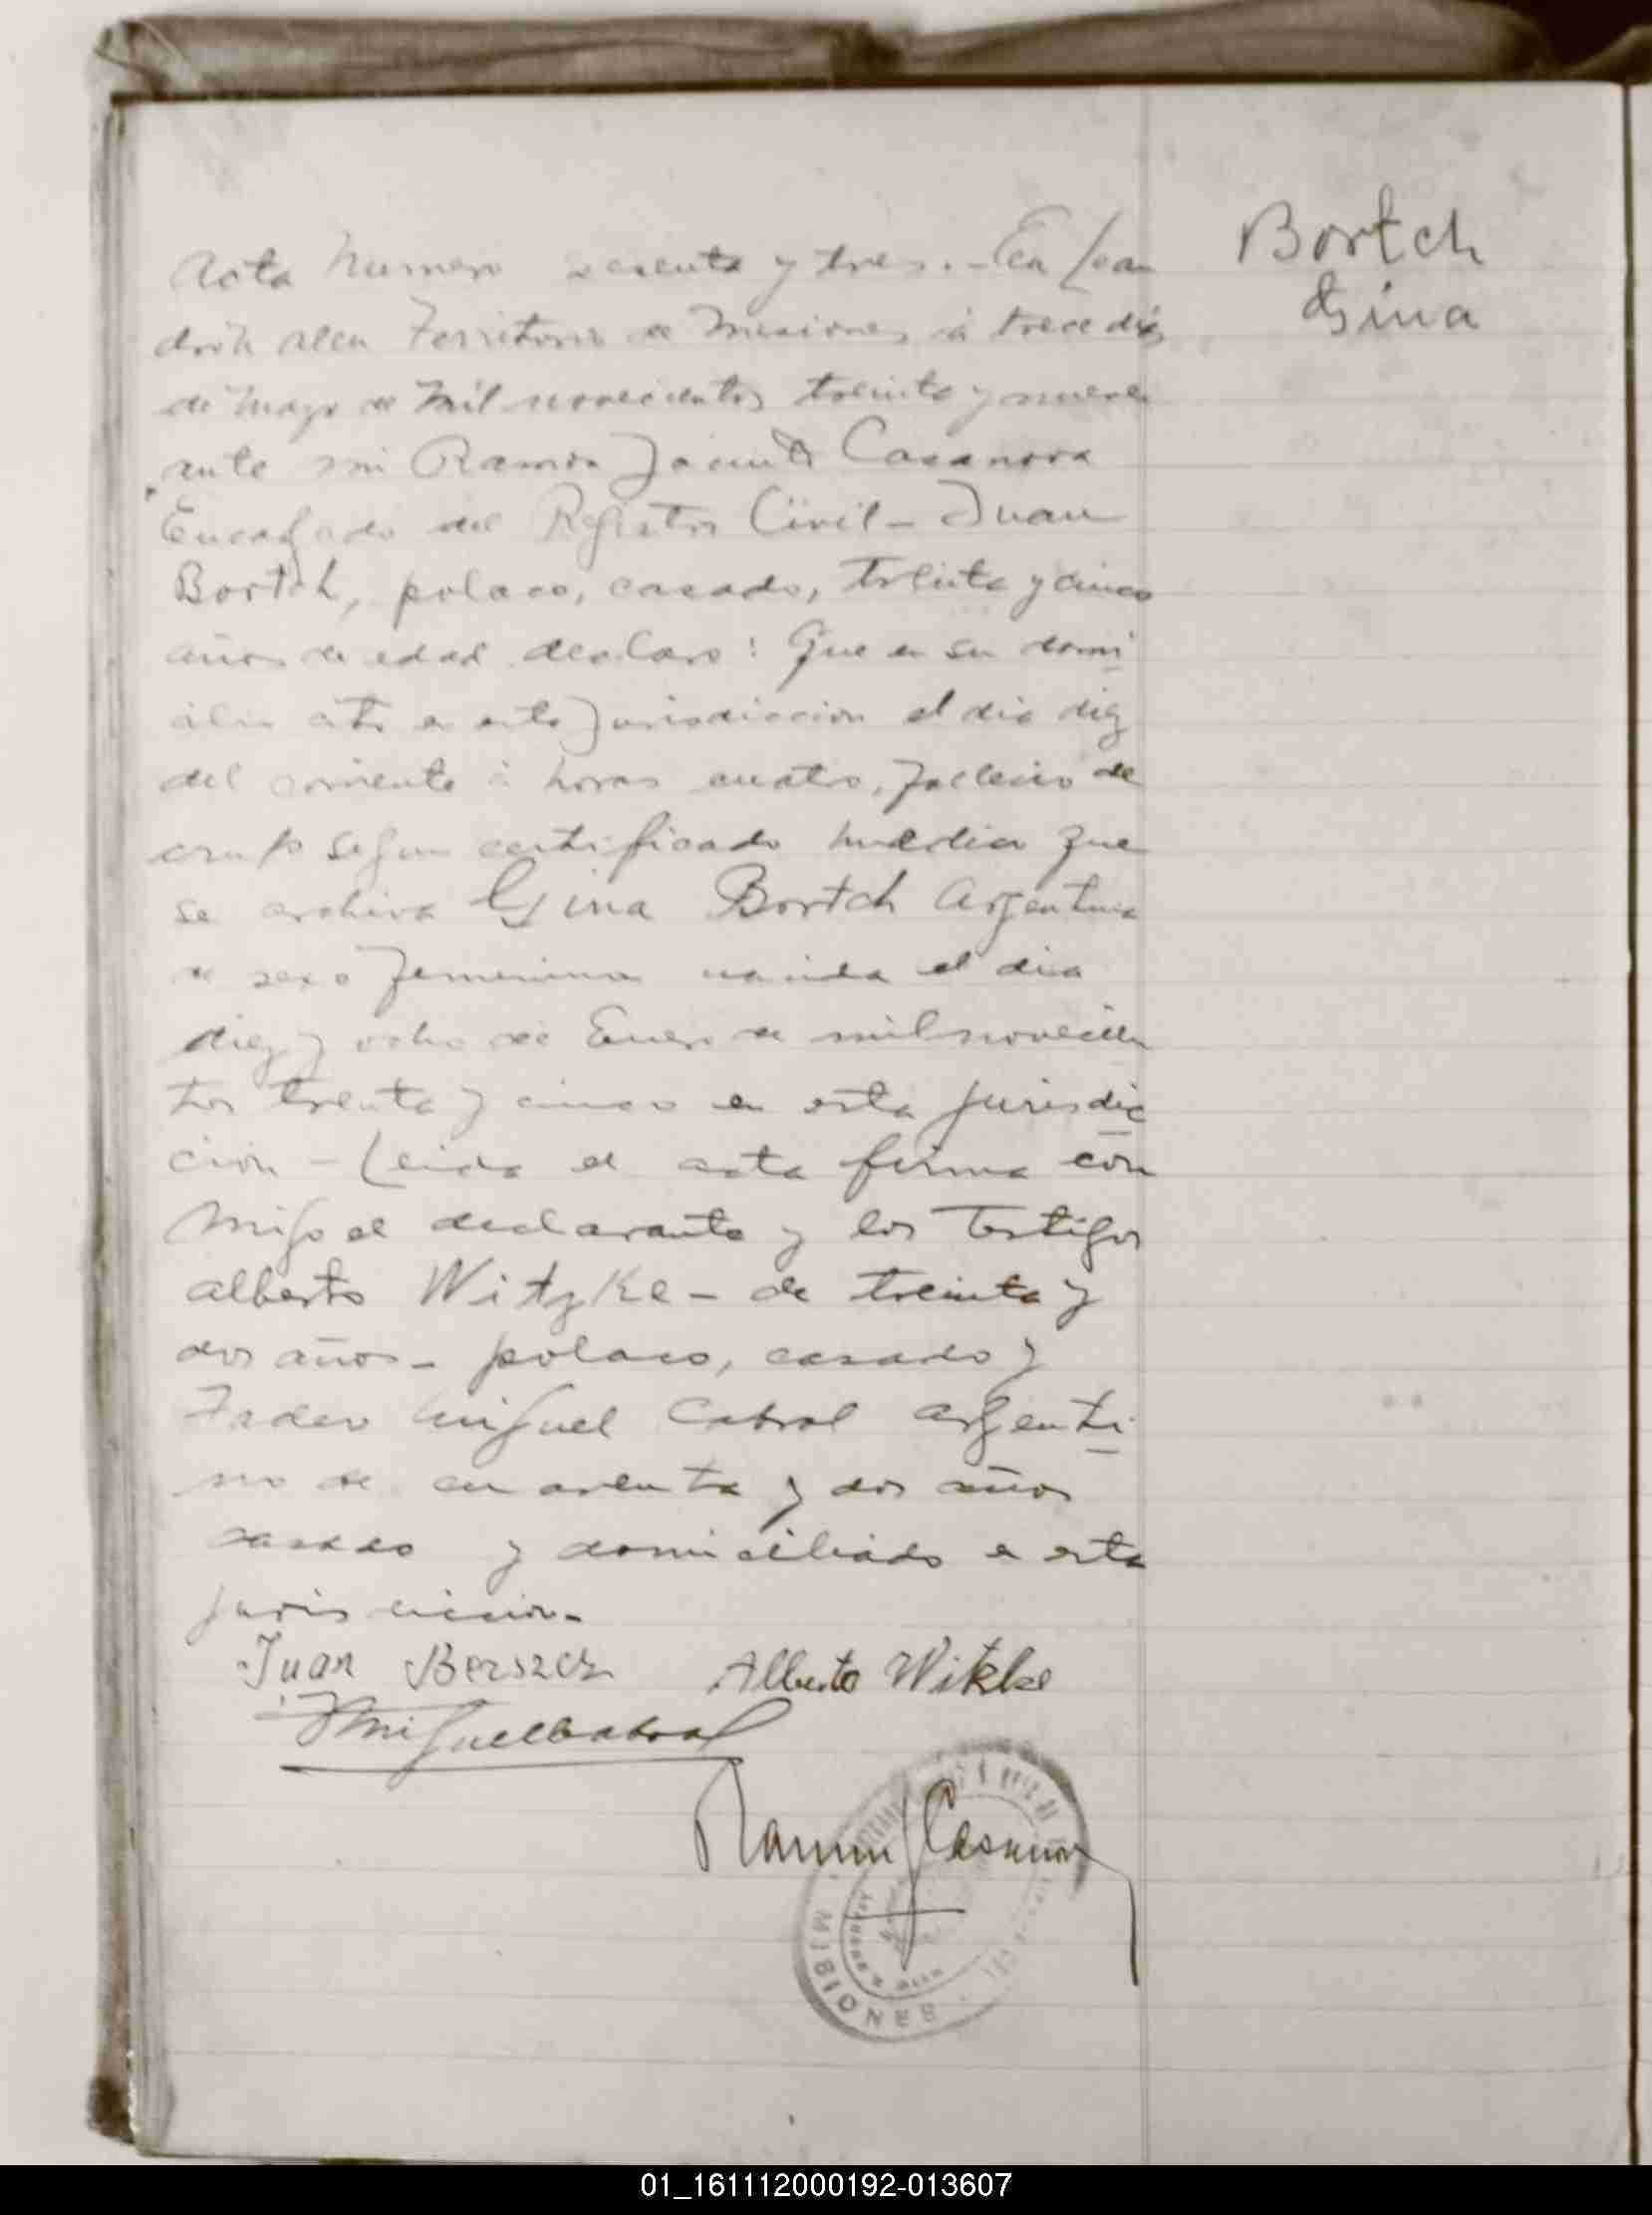 Bortch
Gina
Acta Numero sesenta y tres.- En Lean
dro N Alem Territorio de Misiones á trece días
de Mayo de Mil novecientos treinta y nueve
ante mi Ramon Jacinto Casanova
Encargado del Registro Civil - Juan
Bortch, polaco, casado, treinta y cinco
años de edad declaro: Que en su domi
cilio sito en esta Jurisdiccion el dia diez
del corriente á horas cuatro, fallecio de
crup segun certificado medico que
se archiva Gina Bortch Argentina
de sexo femenino nacida el dia
diez y ocho de Enero de mil novecien
tos trenta y cinco en esta jurisdic
cion - Leida el acta firma con
migo el declarante y los Testigos
Alberto Witzke - de treinta y
dos años - polaco, casado y
Tadeo Miguel Cabral Argenti
no de cuarenta y dos años
casado y domiciliado en esta
jurisdiccion.-
Juan Berszcz Alberto Wikke
T Miguel Cabral
Ramon J Casanova
MISIONES
01_161112000192-013607